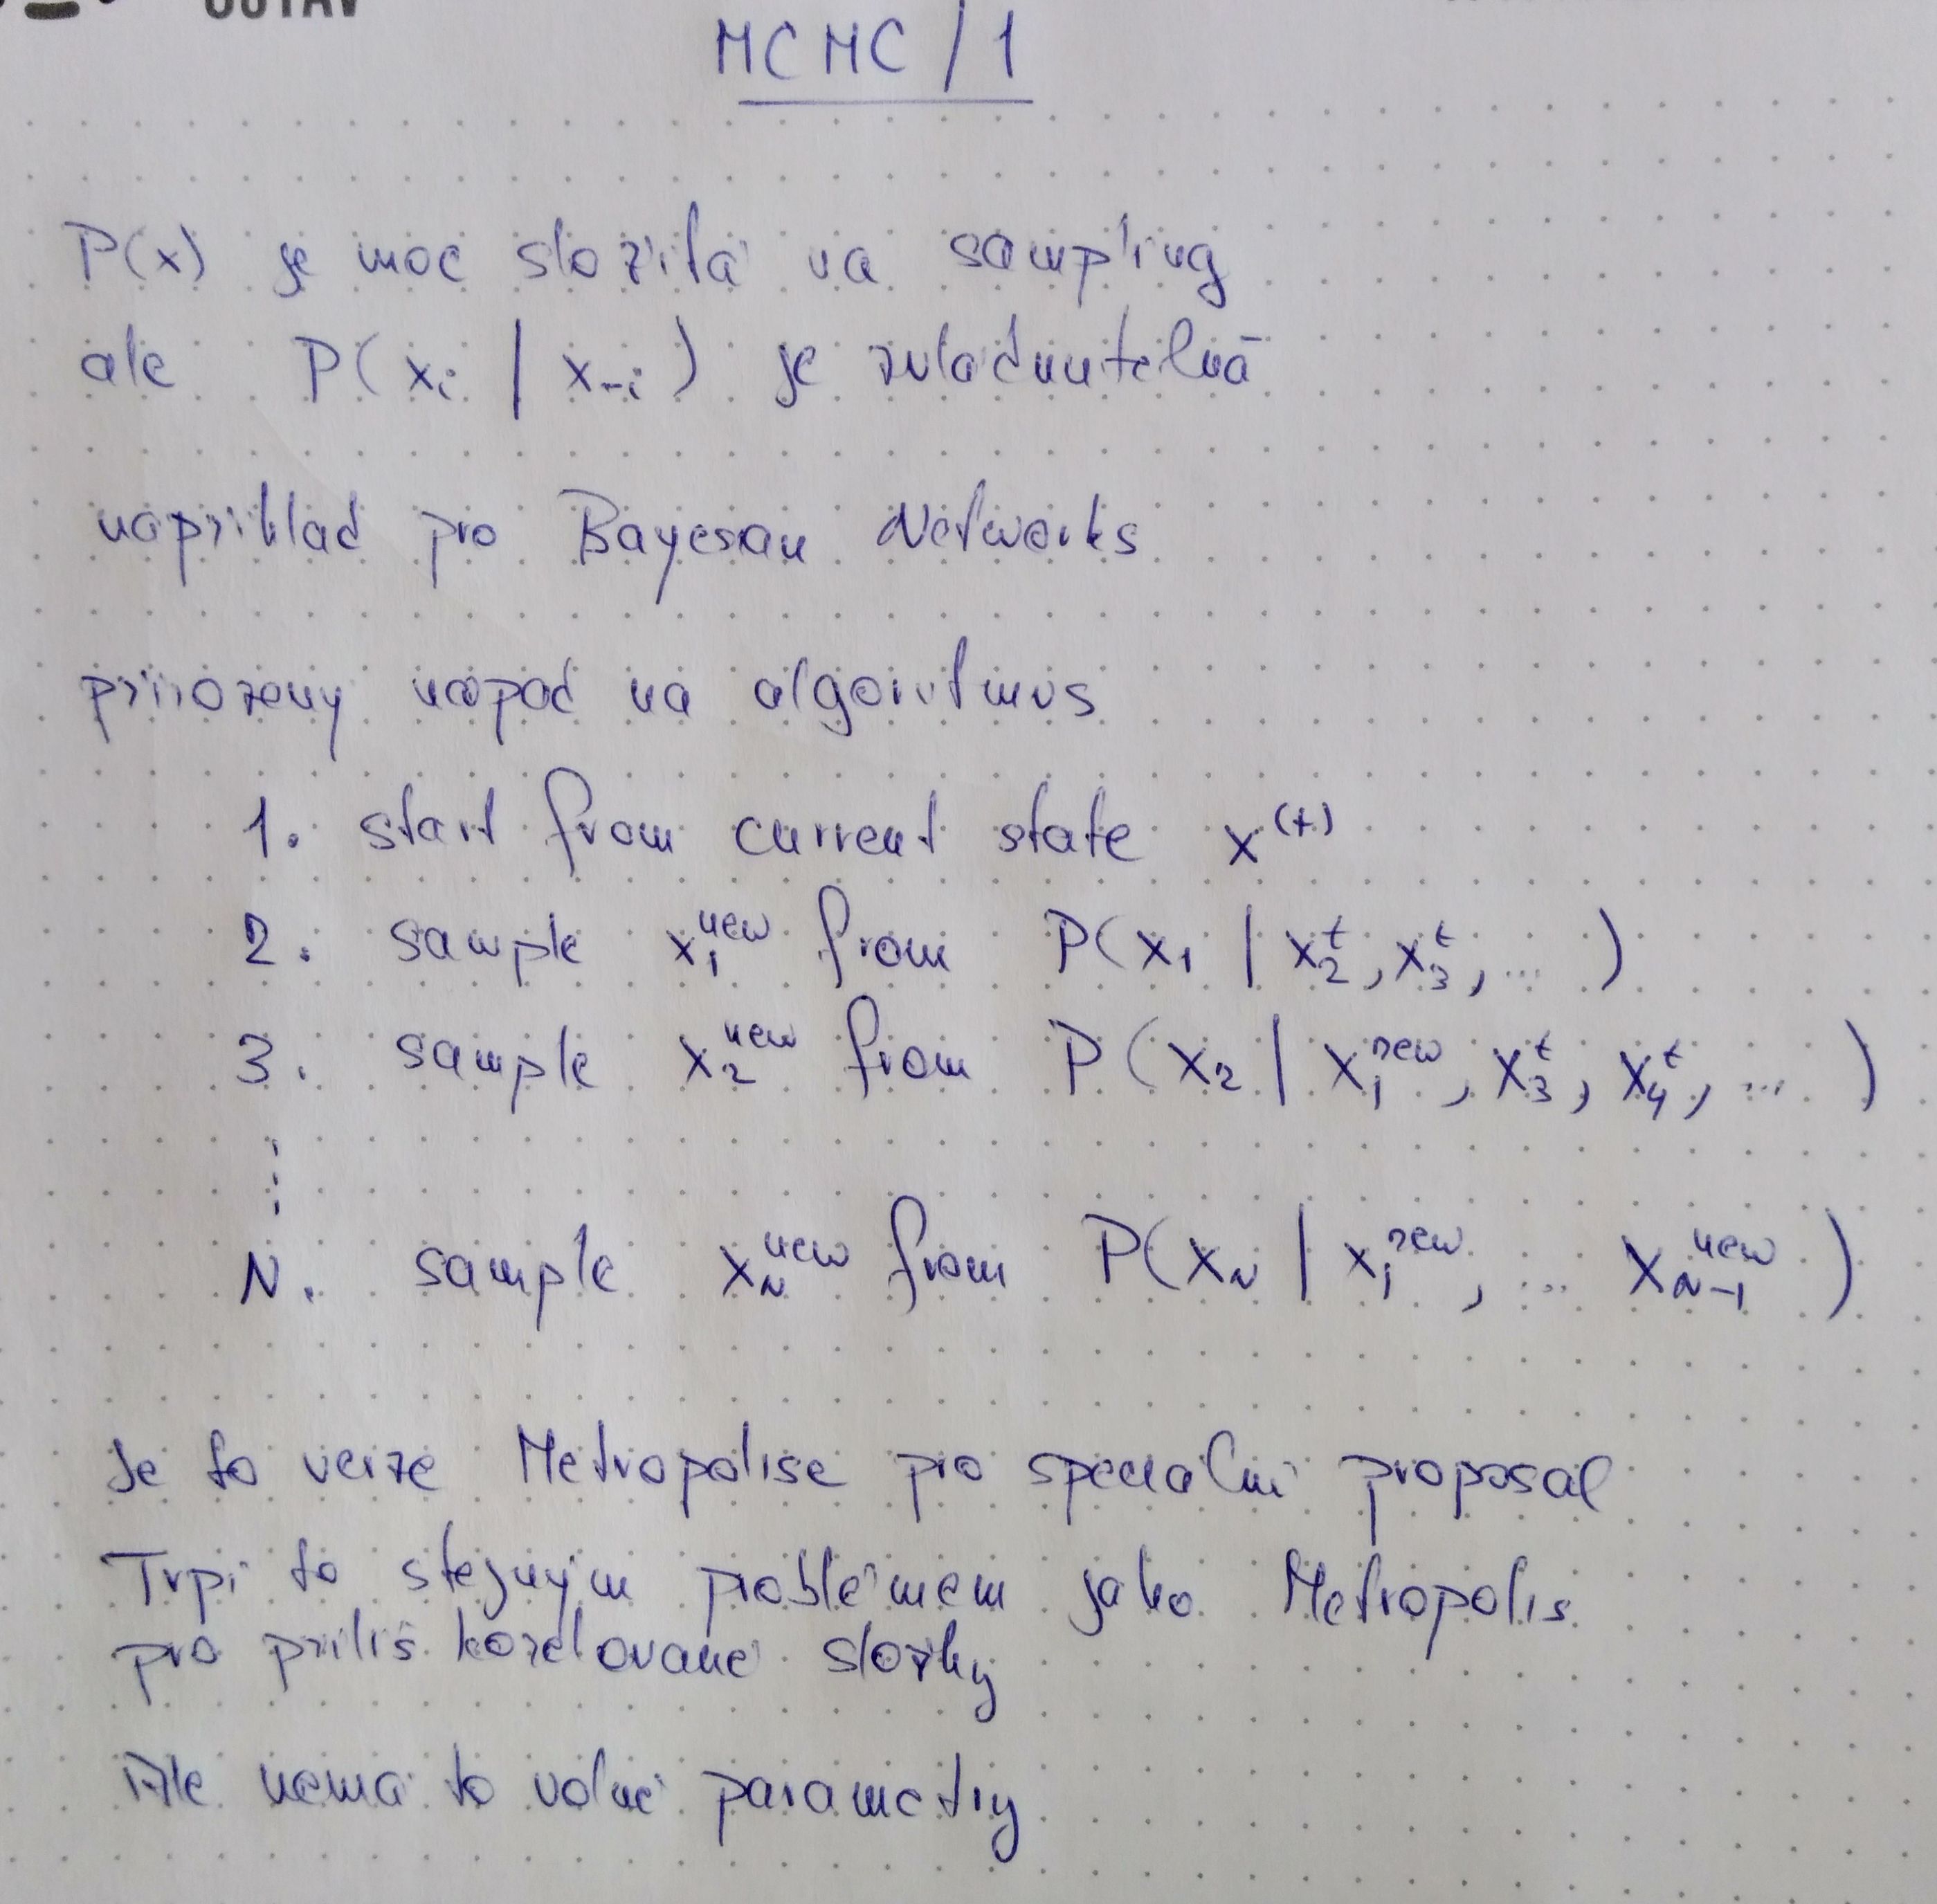 ÚSTAV
MCMC / 1
P(x) je moc složitá na sampling
ale P( x_i | x_-i ) je zvladnutelná
například pro Bayesian Networks
prirozeny napad na algoritmus
1. start from current state x^(t)
2. sample x_1^new from P( x_1 | x_2^t, x_3^t, ... )
3. sample x_2^new from P( x_2 | x_1^new, x_3^t, x_4^t, ... )
⋮
N. sample x_N^new from P( x_N | x_1^new, ... x_N-1^new )
Je to verze Metropolise pro specialní proposal
Trpí to stejným problémem jako Metropolis
pro příliš korelované složky
Ale nemá to volné parametry